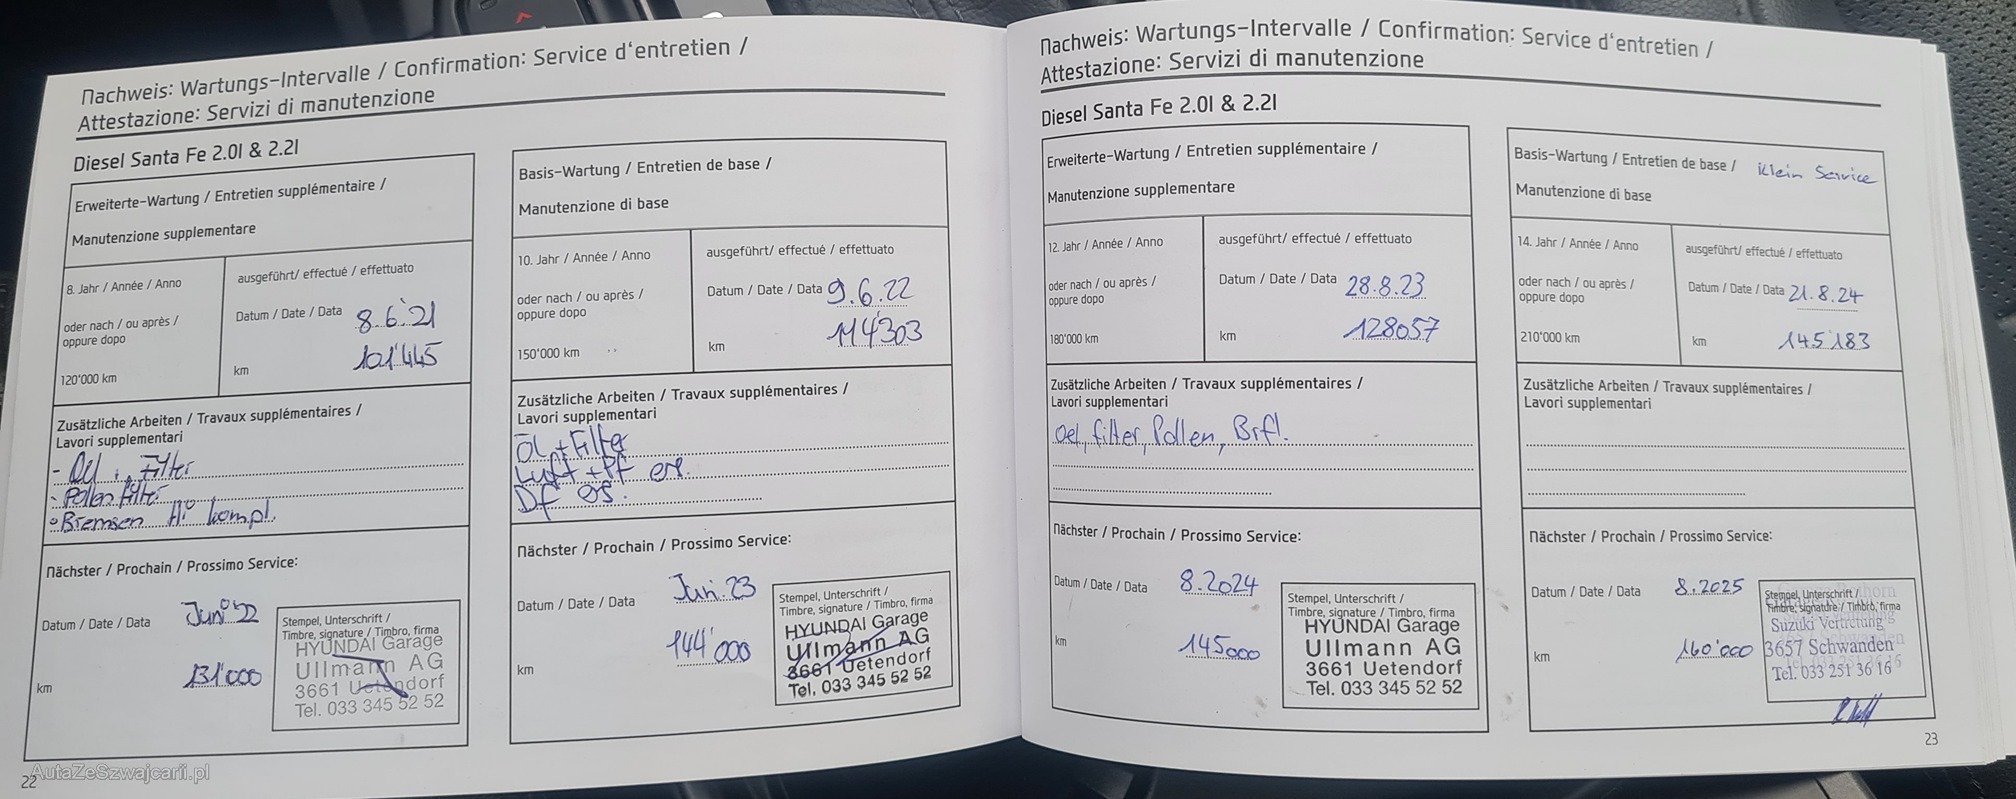 Nachweis: Wartungs-Intervalle / Confirmation: Service d'entretien /
Attestazione: Servizi di manutenzione
Diesel Santa Fe 2.0l & 2.2l
Erweiterte-Wartung / Entretien supplémentaire /
Manutenzione supplementare
8. Jahr / Année / Anno
oder nach / ou après /
oppure dopo
120'000 km
ausgeführt/ effectué / effettuato
Datum / Date / Data 8.6.21
km 101'445
Zusätzliche Arbeiten / Travaux supplémentaires /
Lavori supplementari
- Oel Filter
- Pollenfilter
Bremsen kompl.
Nächster / Prochain / Prossimo Service:
Datum / Date / Data Juni 22
km 131'000
Stempel, Unterschrift /
Timbre, signature / Timbro, firma
HYUNDAI Garage
Ullmann AG
3661 Uetendorf
Tel. 033 345 52 52
Basis-Wartung / Entretien de base /
Manutenzione di base
10. Jahr / Année / Anno
oder nach / ou après /
oppure dopo
150'000 km
ausgeführt/ effectué / effettuato
Datum / Date / Data 9.6.22
km 114'303
Zusätzliche Arbeiten / Travaux supplémentaires /
Lavori supplementari
Öl + Filter
Luft + PF ers.
DF ers.
Nächster / Prochain / Prossimo Service:
Datum / Date / Data Juni 23
km 144'000
Stempel, Unterschrift /
Timbre, signature / Timbro, firma
HYUNDAI Garage
Ullmann AG
3661 Uetendorf
Tel. 033 345 52 52
22
AutaZeSzwajcarii.pl
Nachweis: Wartungs-Intervalle / Confirmation: Service d'entretien /
Attestazione: Servizi di manutenzione
Diesel Santa Fe 2.0l & 2.2l
Erweiterte-Wartung / Entretien supplémentaire /
Manutenzione supplementare
12. Jahr / Année / Anno
oder nach / ou après /
oppure dopo
180'000 km
ausgeführt/ effectué / effettuato
Datum / Date / Data 28.8.23
km 128057
Zusätzliche Arbeiten / Travaux supplémentaires /
Lavori supplementari
Oel, filter, Pollen, Brfl.
Nächster / Prochain / Prossimo Service:
Datum / Date / Data 8.2024
km 145000
Stempel, Unterschrift /
Timbre, signature / Timbro, firma
HYUNDAI Garage
Ullmann AG
3661 Uetendorf
Tel. 033 345 52 52
Basis-Wartung / Entretien de base / Klein Service
Manutenzione di base
14. Jahr / Année / Anno
oder nach / ou après /
oppure dopo
210'000 km
ausgeführt/ effectué / effettuato
Datum / Date / Data 21.8.24
km 145'183
Zusätzliche Arbeiten / Travaux supplémentaires /
Lavori supplementari
Nächster / Prochain / Prossimo Service:
Datum / Date / Data 8.2025
km 160'000
Stempel, Unterschrift /
Timbre, signature / Timbro, firma
Suzuki Vertretung
3657 Schwanden
Tel. 033 251 36 16
23